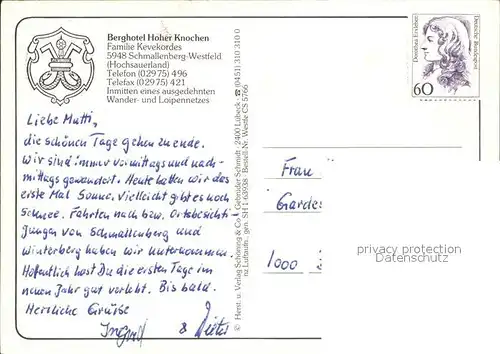 Berghotel Hoher Knochen
Familie Kevekordes
5948 Schmallenberg-Westfeld
(Hochsauerland)
Telefon (02975) 496
Telefax (02975) 421
Inmitten eines ausgedehnten
Wander- und Loipennetzes
Liebe Mutti,
die schönen Tage gehen zu ende.
Wir sind immer vormittags und nach-
mittags gewandert. Heute hatten wir das
erste Mal Sonne. Vielleicht gibt es noch
Schnee. Fahrten nach bzw. Ortsbesicht
igungen von Schmallenberg und
Winterberg haben wir unternommen.
Hoffentlich hast Du die ersten Tage im
neuen Jahr gut verlebt. Bis bald.
Herzliche Grüße
Ingrid & Dieter
© Herst. u. Verlag Schöning & Co · Gebrüder Schmidt · 2400 Lübeck · ☎ (0451) 310 310 0
nz Luftaufn., gen. SH 1-63938 · Bestell-Nr. Westfe CS 5766
Dorothea Erxleben
Deutsche Bundespost
60
Frau
Gardes
1000
privacy protection
Datenschutz